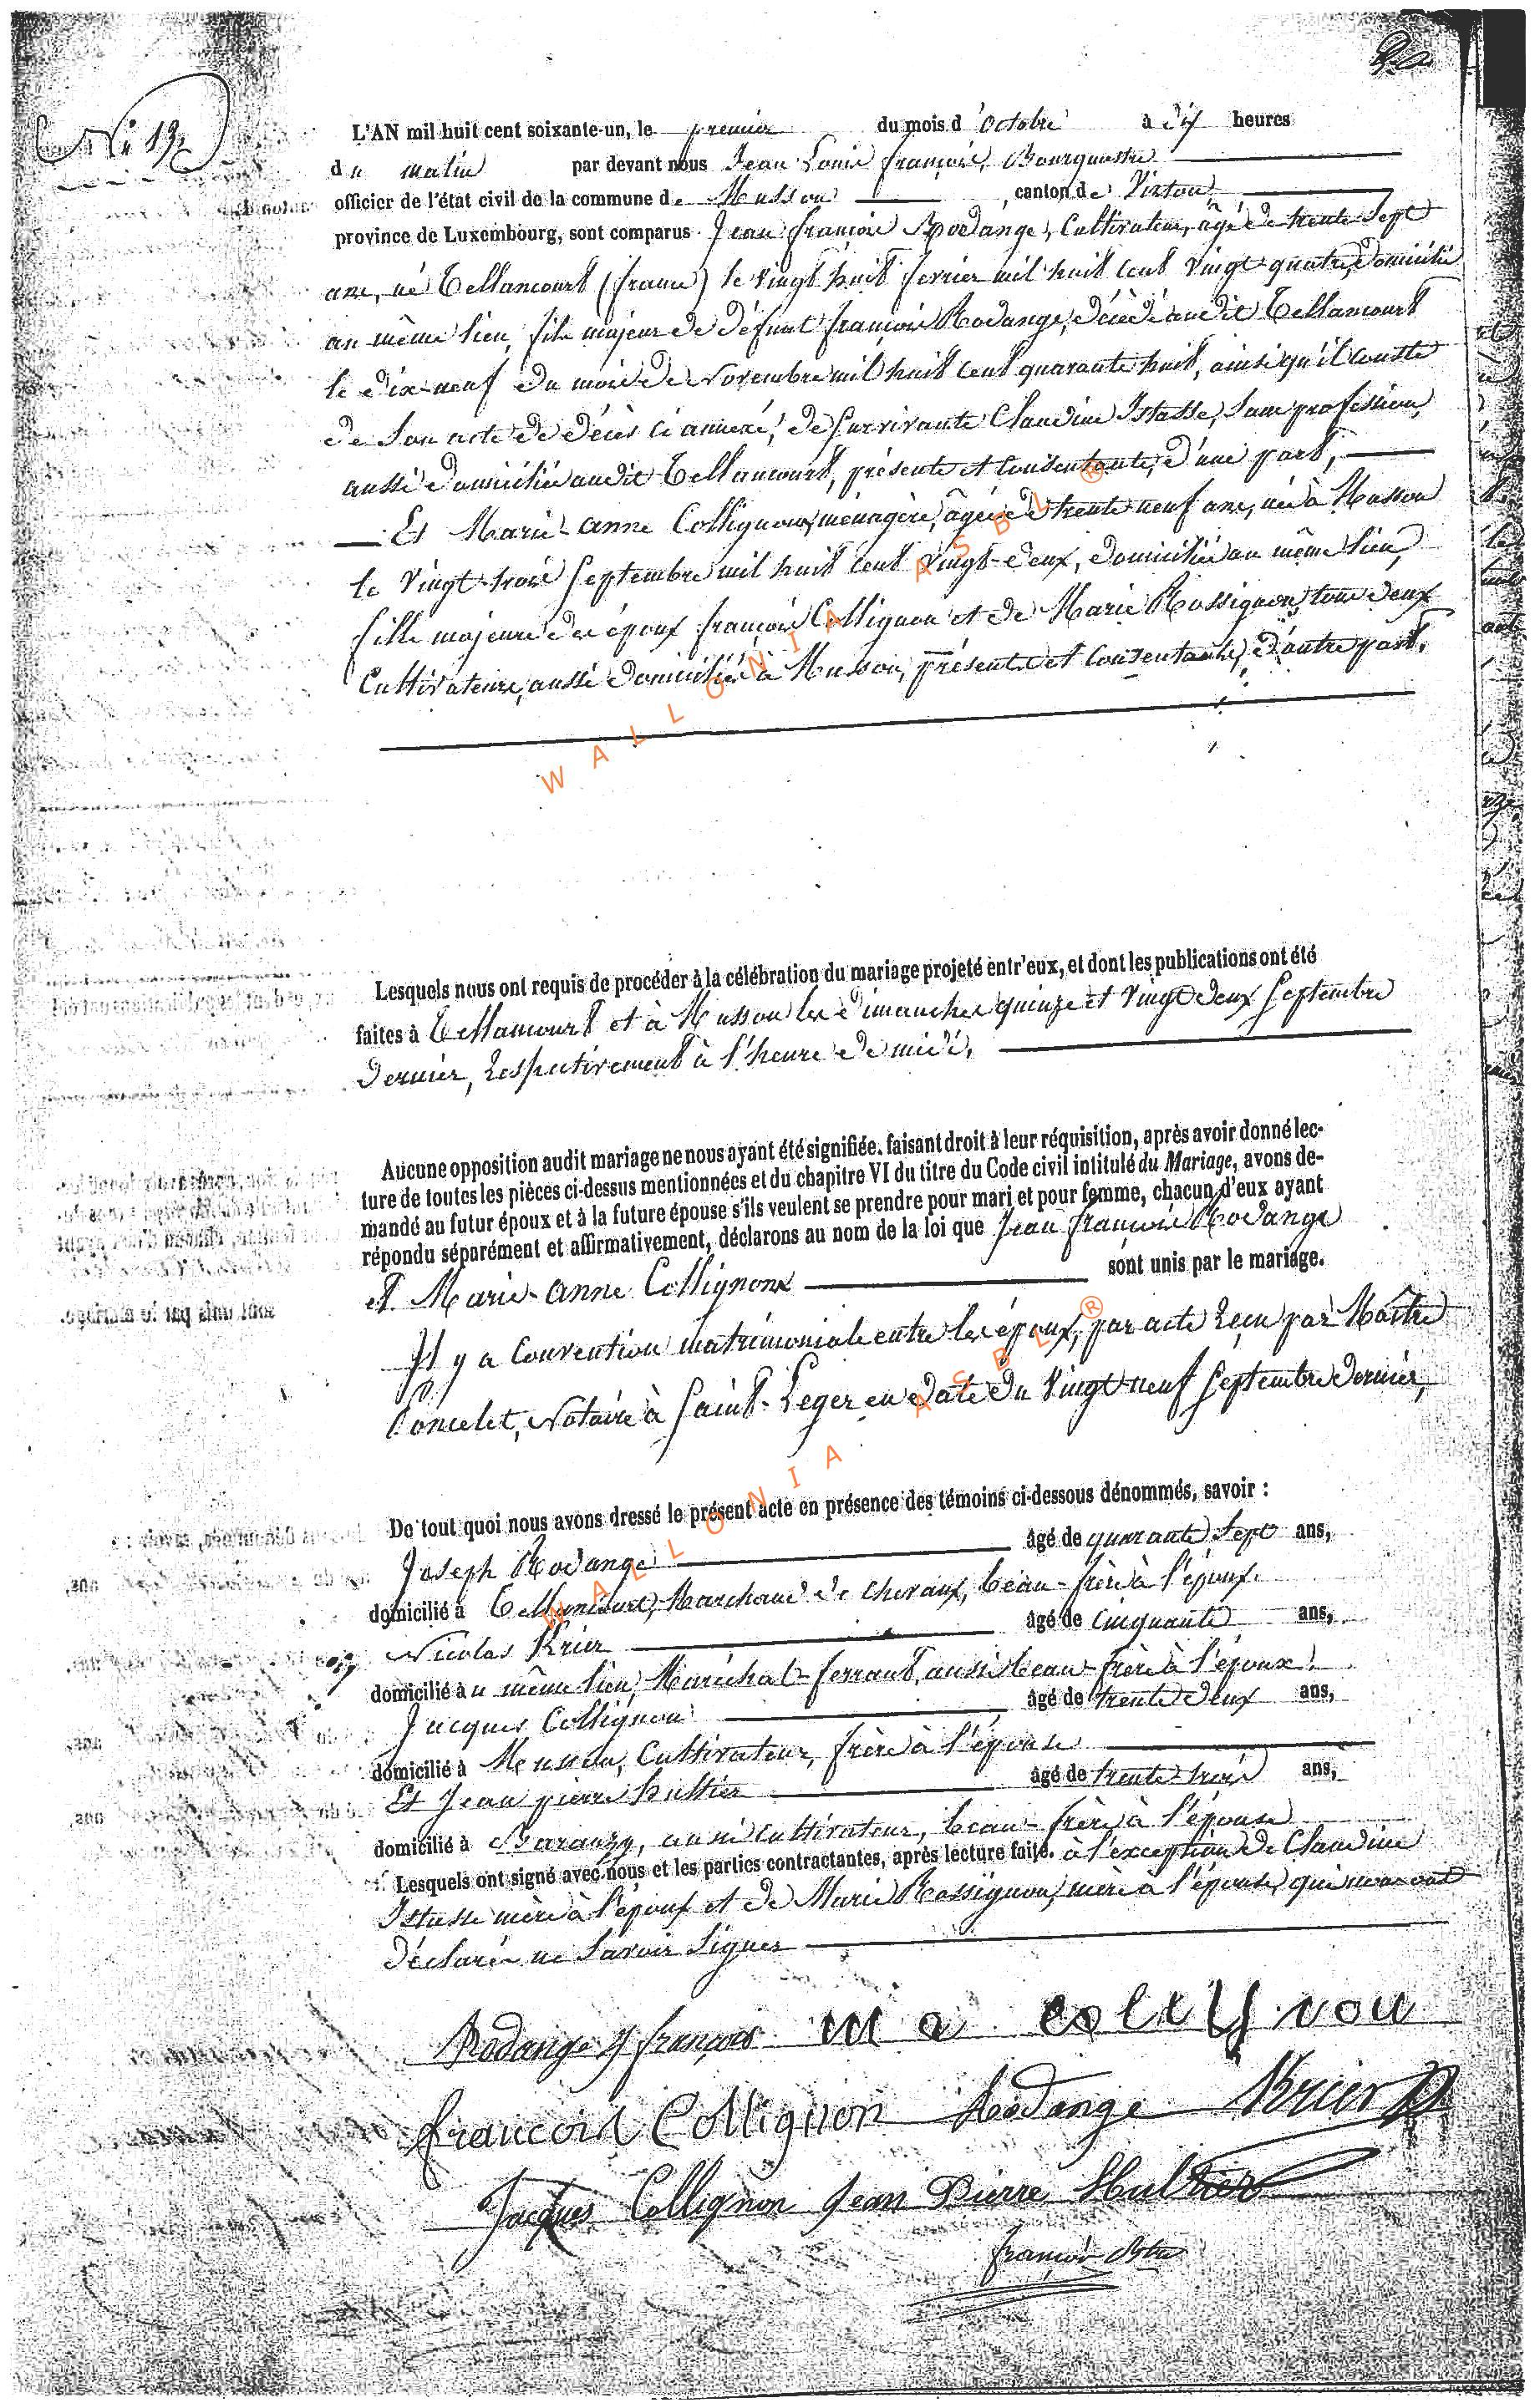 N.º 13
L'AN mil huit cent soixante-un, le premier du mois d'octobre à dix heures
du matin par devant nous Jean Louis françois,
officier de l'état civil de la commune de Musson, canton de Virton,
province de Luxembourg, sont comparus Jean françois Rodange, Cultivateur, âgé de trente Sept
ans, né Tellancourt (france) le vingt huit fevrier mil huit cent vingt-quatre, domicilié
au même lieu, fils majeur de défunt françois Rodange, décédé audit Tellancourt
le dix-neuf du mois de Novembre mil huit cent quarante huit, ainsi qu'il conste
de Son acte de décès ci annexé, de Survivante Claudine Istasse, Sans profession,
aussi domiciliée audit Tellancourt, présente et Consentante, d'une part,
Et Marie-anne Collignon, ménagère, âgée de trente neuf ans, née à Musson
le vingt-trois Septembre mil huit cent vingt-deux, domiciliée au même lieu,
fille majeure des époux françois Collignon et de Marie Rossignon, tous deux
Cultivateurs, aussi domiciliés à Musson, présents et Consentants, d'autre part.
Lesquels nous ont requis de procéder à la célébration du mariage projeté entr'eux, et dont les publications ont été
faites à Tellancourt et à Musson les dimanches quinze et vingt deux Septembre
dernier, respectivement à l'heure de midi,
Aucune opposition audit mariage ne nous ayant été signifiée, faisant droit à leur réquisition, après avoir donné lec-
ture de toutes les pièces ci-dessus mentionnées et du chapitre VI du titre du Code civil intitulé du Mariage, avons de-
mandé au futur époux et à la future épouse s'ils veulent se prendre pour mari et pour femme, chacun d'eux ayant
répondu séparément et affirmativement, déclarons au nom de la loi que Jean françois Rodange
et Marie-anne Collignon sont unis par le mariage.
Il y a Convention matrimoniale entre les époux, par acte reçu par Maître
Poncelet, Notaire à Saint-Leger en date du vingt-neuf Septembre dernier,
De tout quoi nous avons dressé le présent acte en présence des témoins ci-dessous dénommés, savoir :
Joseph Rodange âgé de quarante Sept ans,
domicilié à Tellancourt, Marchand de chevaux, beau-frère à l'époux.
Nicolas Krier âgé de cinquante ans,
domicilié au même lieu, Maréchal-ferrant, aussi beau-frère à l'époux.
Jacques Collignon âgé de trente deux ans,
domicilié à Musson, Cultivateur, frère à l'épouse
Et Jean pierre hultier âgé de trente-trois ans,
domicilié à Baranzy, aussi cultivateur, beau-frère à l'épouse
Lesquels ont signé avec nous et les parties contractantes, après lecture faite. à l'exception de Claudine
Istasse mère à l'époux et de Marie Rossignon, mère à l'épouse, qui nous ont
déclaré ne Savoir Signer
Rodange J françois m a collignon
francois Collignon Rodange Krier
Jacques Collignon Jean Pierre Hultier
françois
WALLONIA ASBL ®
WALLONIA ASBL ®